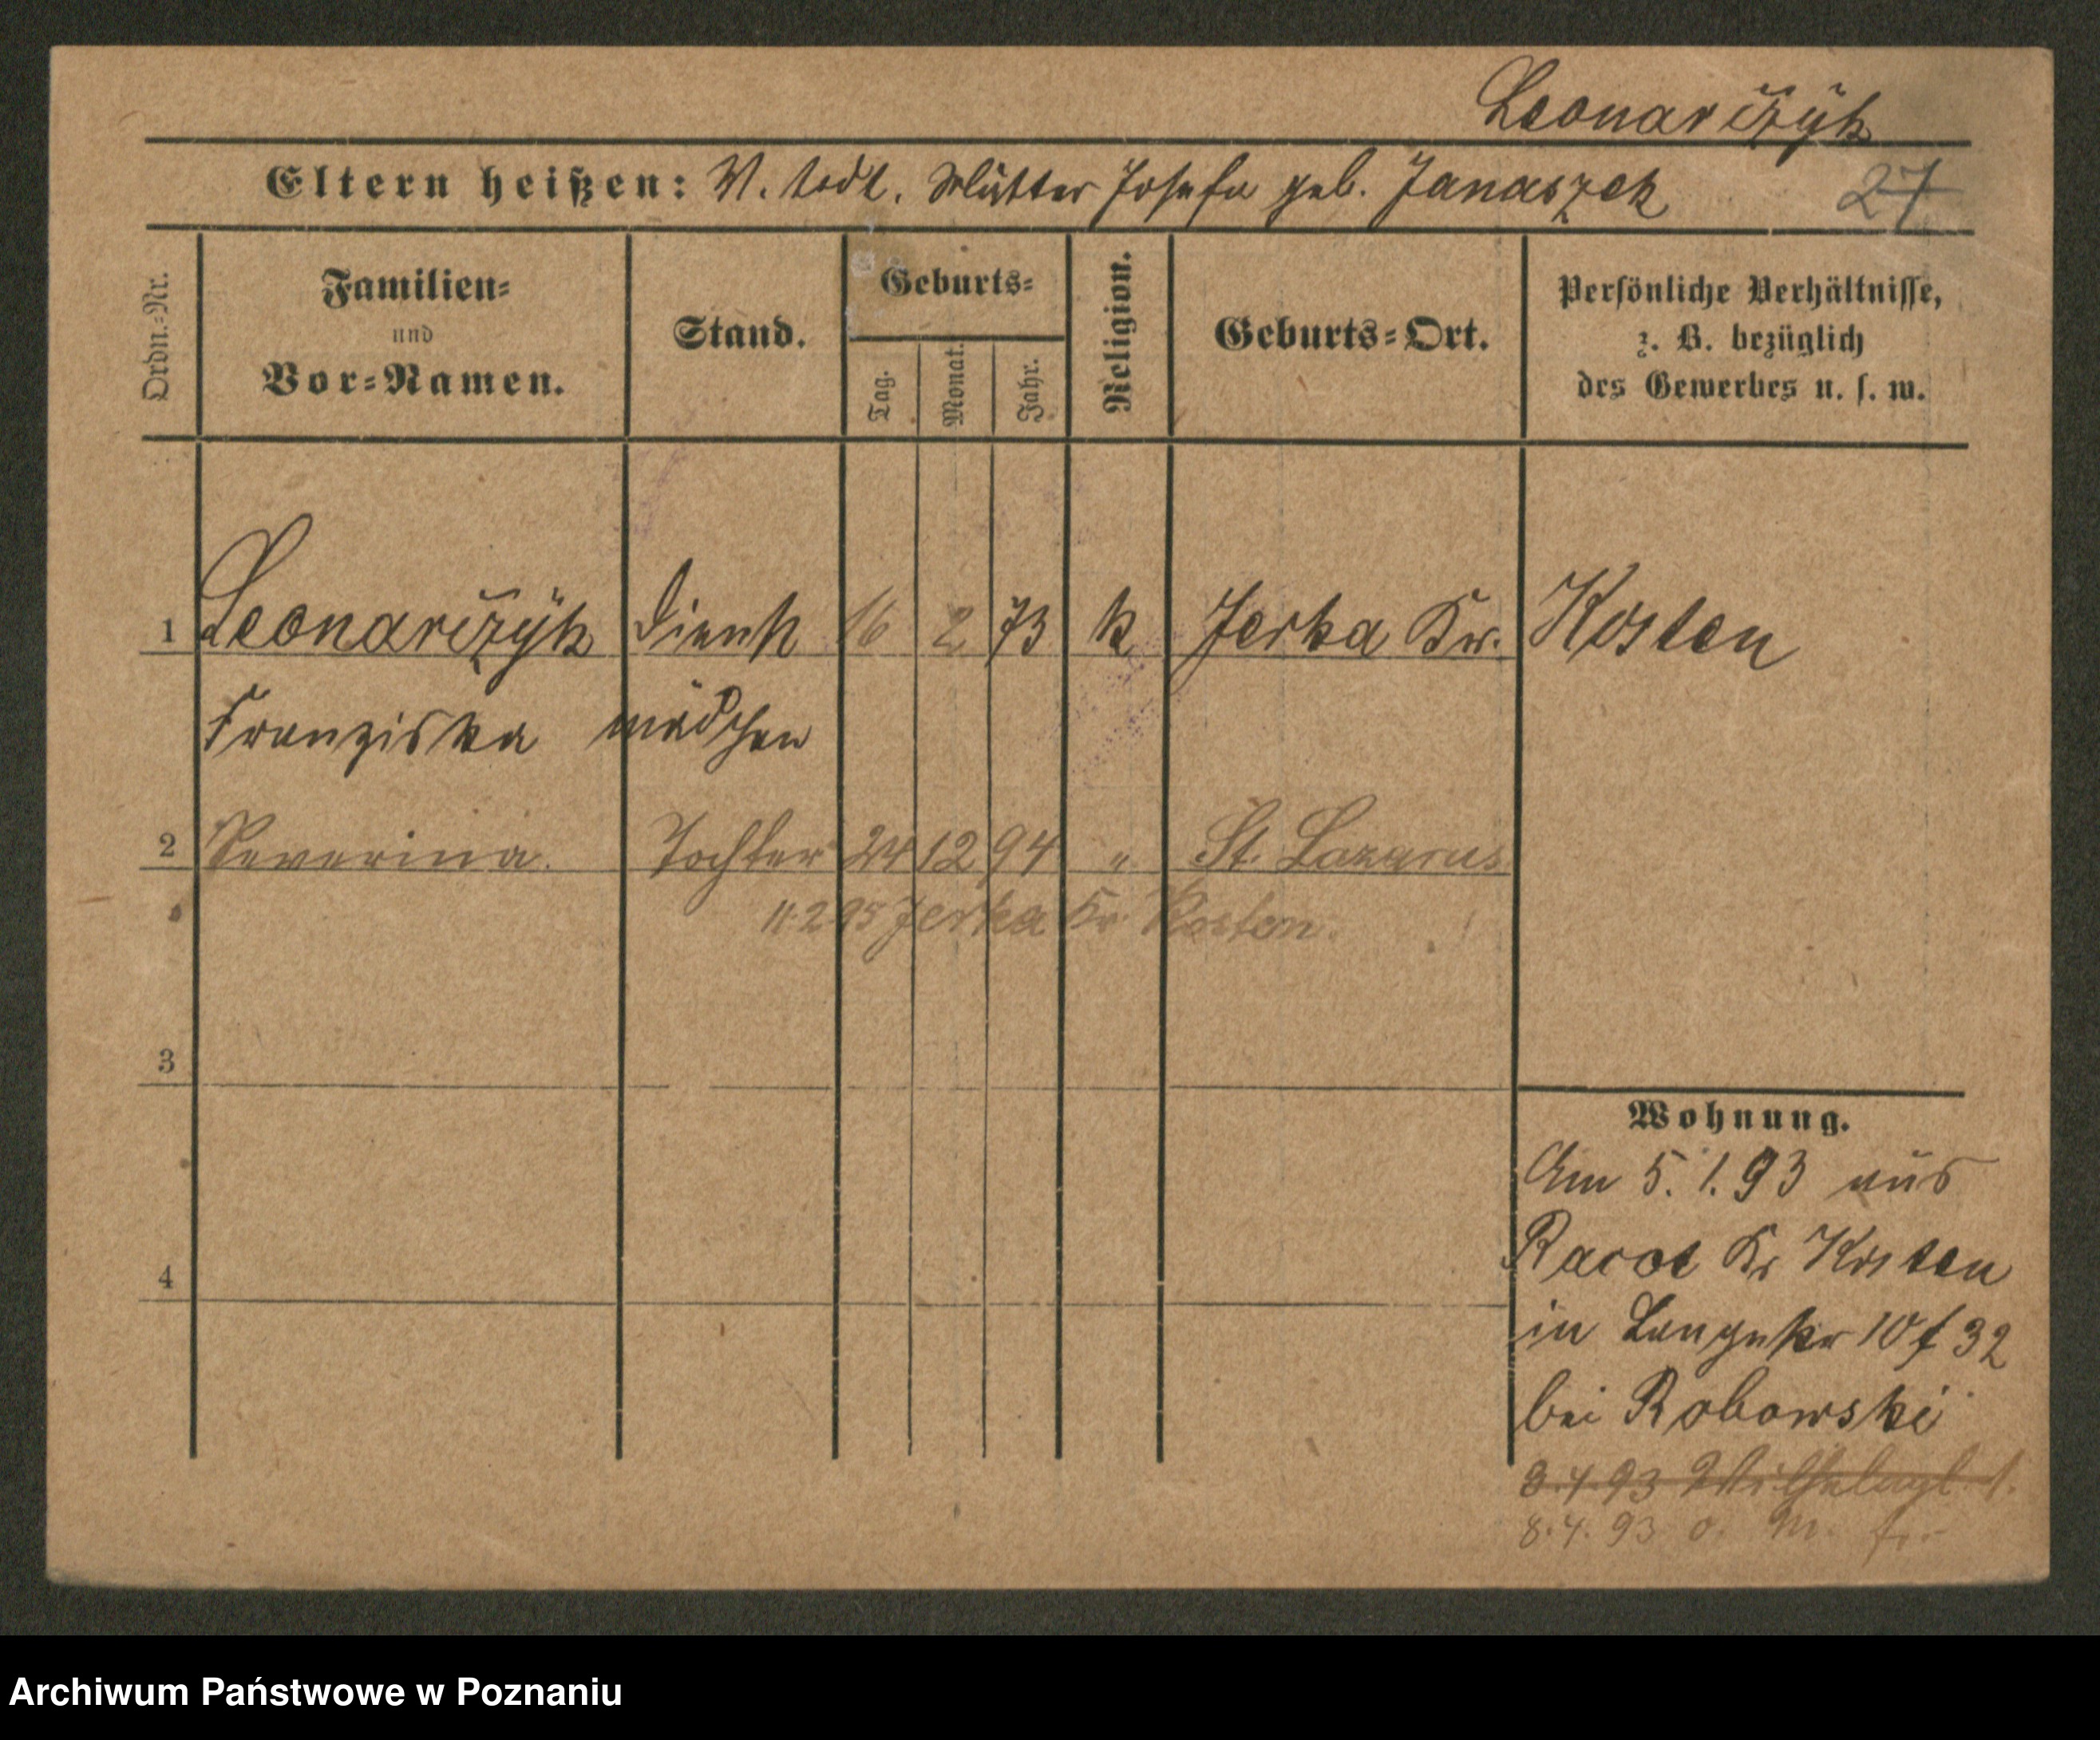 Leonarčzyk
Eltern heißen: V. todt. Mutter Josefa geb. Janaszek 27
Ordn.=Nr.
Familien=
und
Vor=Namen.
Stand.
Geburts=
Tag.
Monat.
Jahr.
Religion.
Geburts=Ort.
Persönliche Verhältnisse,
z. B. bezüglich
des Gewerbes u. s. w.
1 Leonarčzyk Dienst 16 2 73 k Jerka Kr. Kosten
Franziska mädchen
2 Severina. Tochter 24 12 94 " St. Lazarus
11.2.95 Jerka Kr. Kosten.
3
4
Wohnung.
Am 5.1.93 aus
Racot Kr Kosten
in 32
bei Robowski
3.4.93 1.
8.4.93 o. M.
Archiwum Państwowe w Poznaniu